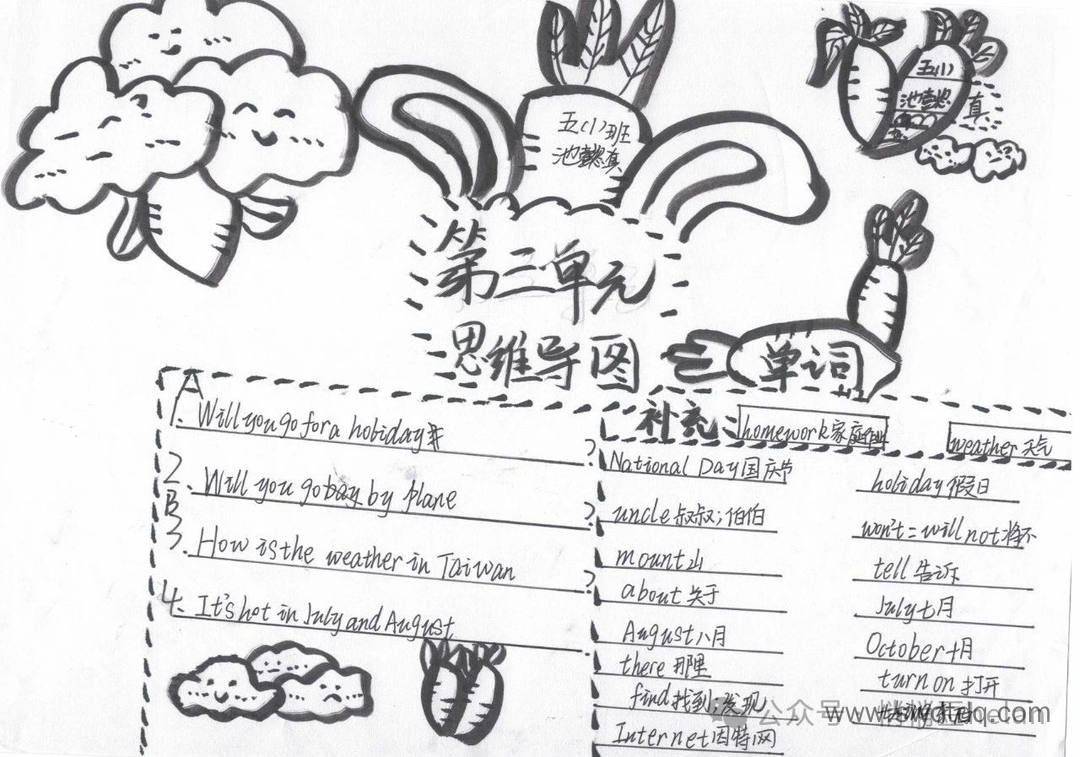 五(1)班
池懿真
五(1)
池懿
真
第三单元
思维导图
单词
A
1. Will you go for a holiday
?
2. Will you go by by plane
?
B
3. How is the weather in Taiwan
?
4. It's hot in July and August
补充
homework家庭作业
weather天气
National Day国庆节
holiday假日
uncle叔叔;伯伯
won't=will not将不
mount山
tell告诉
about关于
July七月
August八月
October十月
there那里
turn on打开
find找到;发现
Internet因特网
公众号
www.wdftdq.com